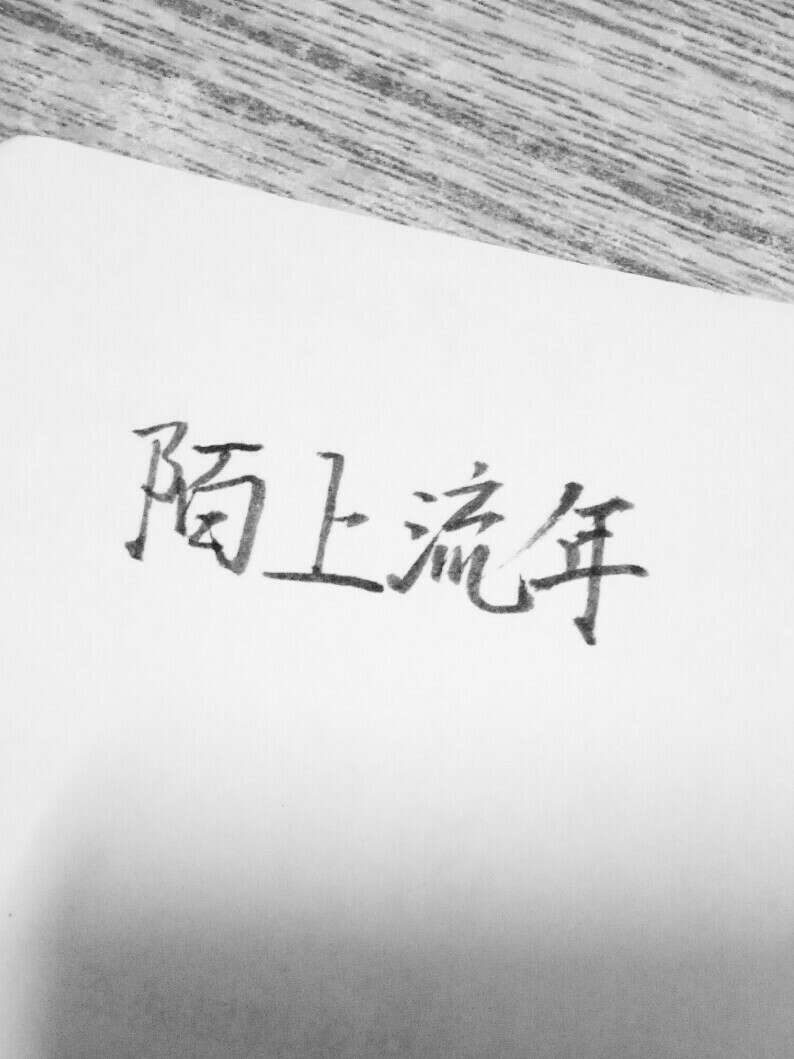 陌上流年